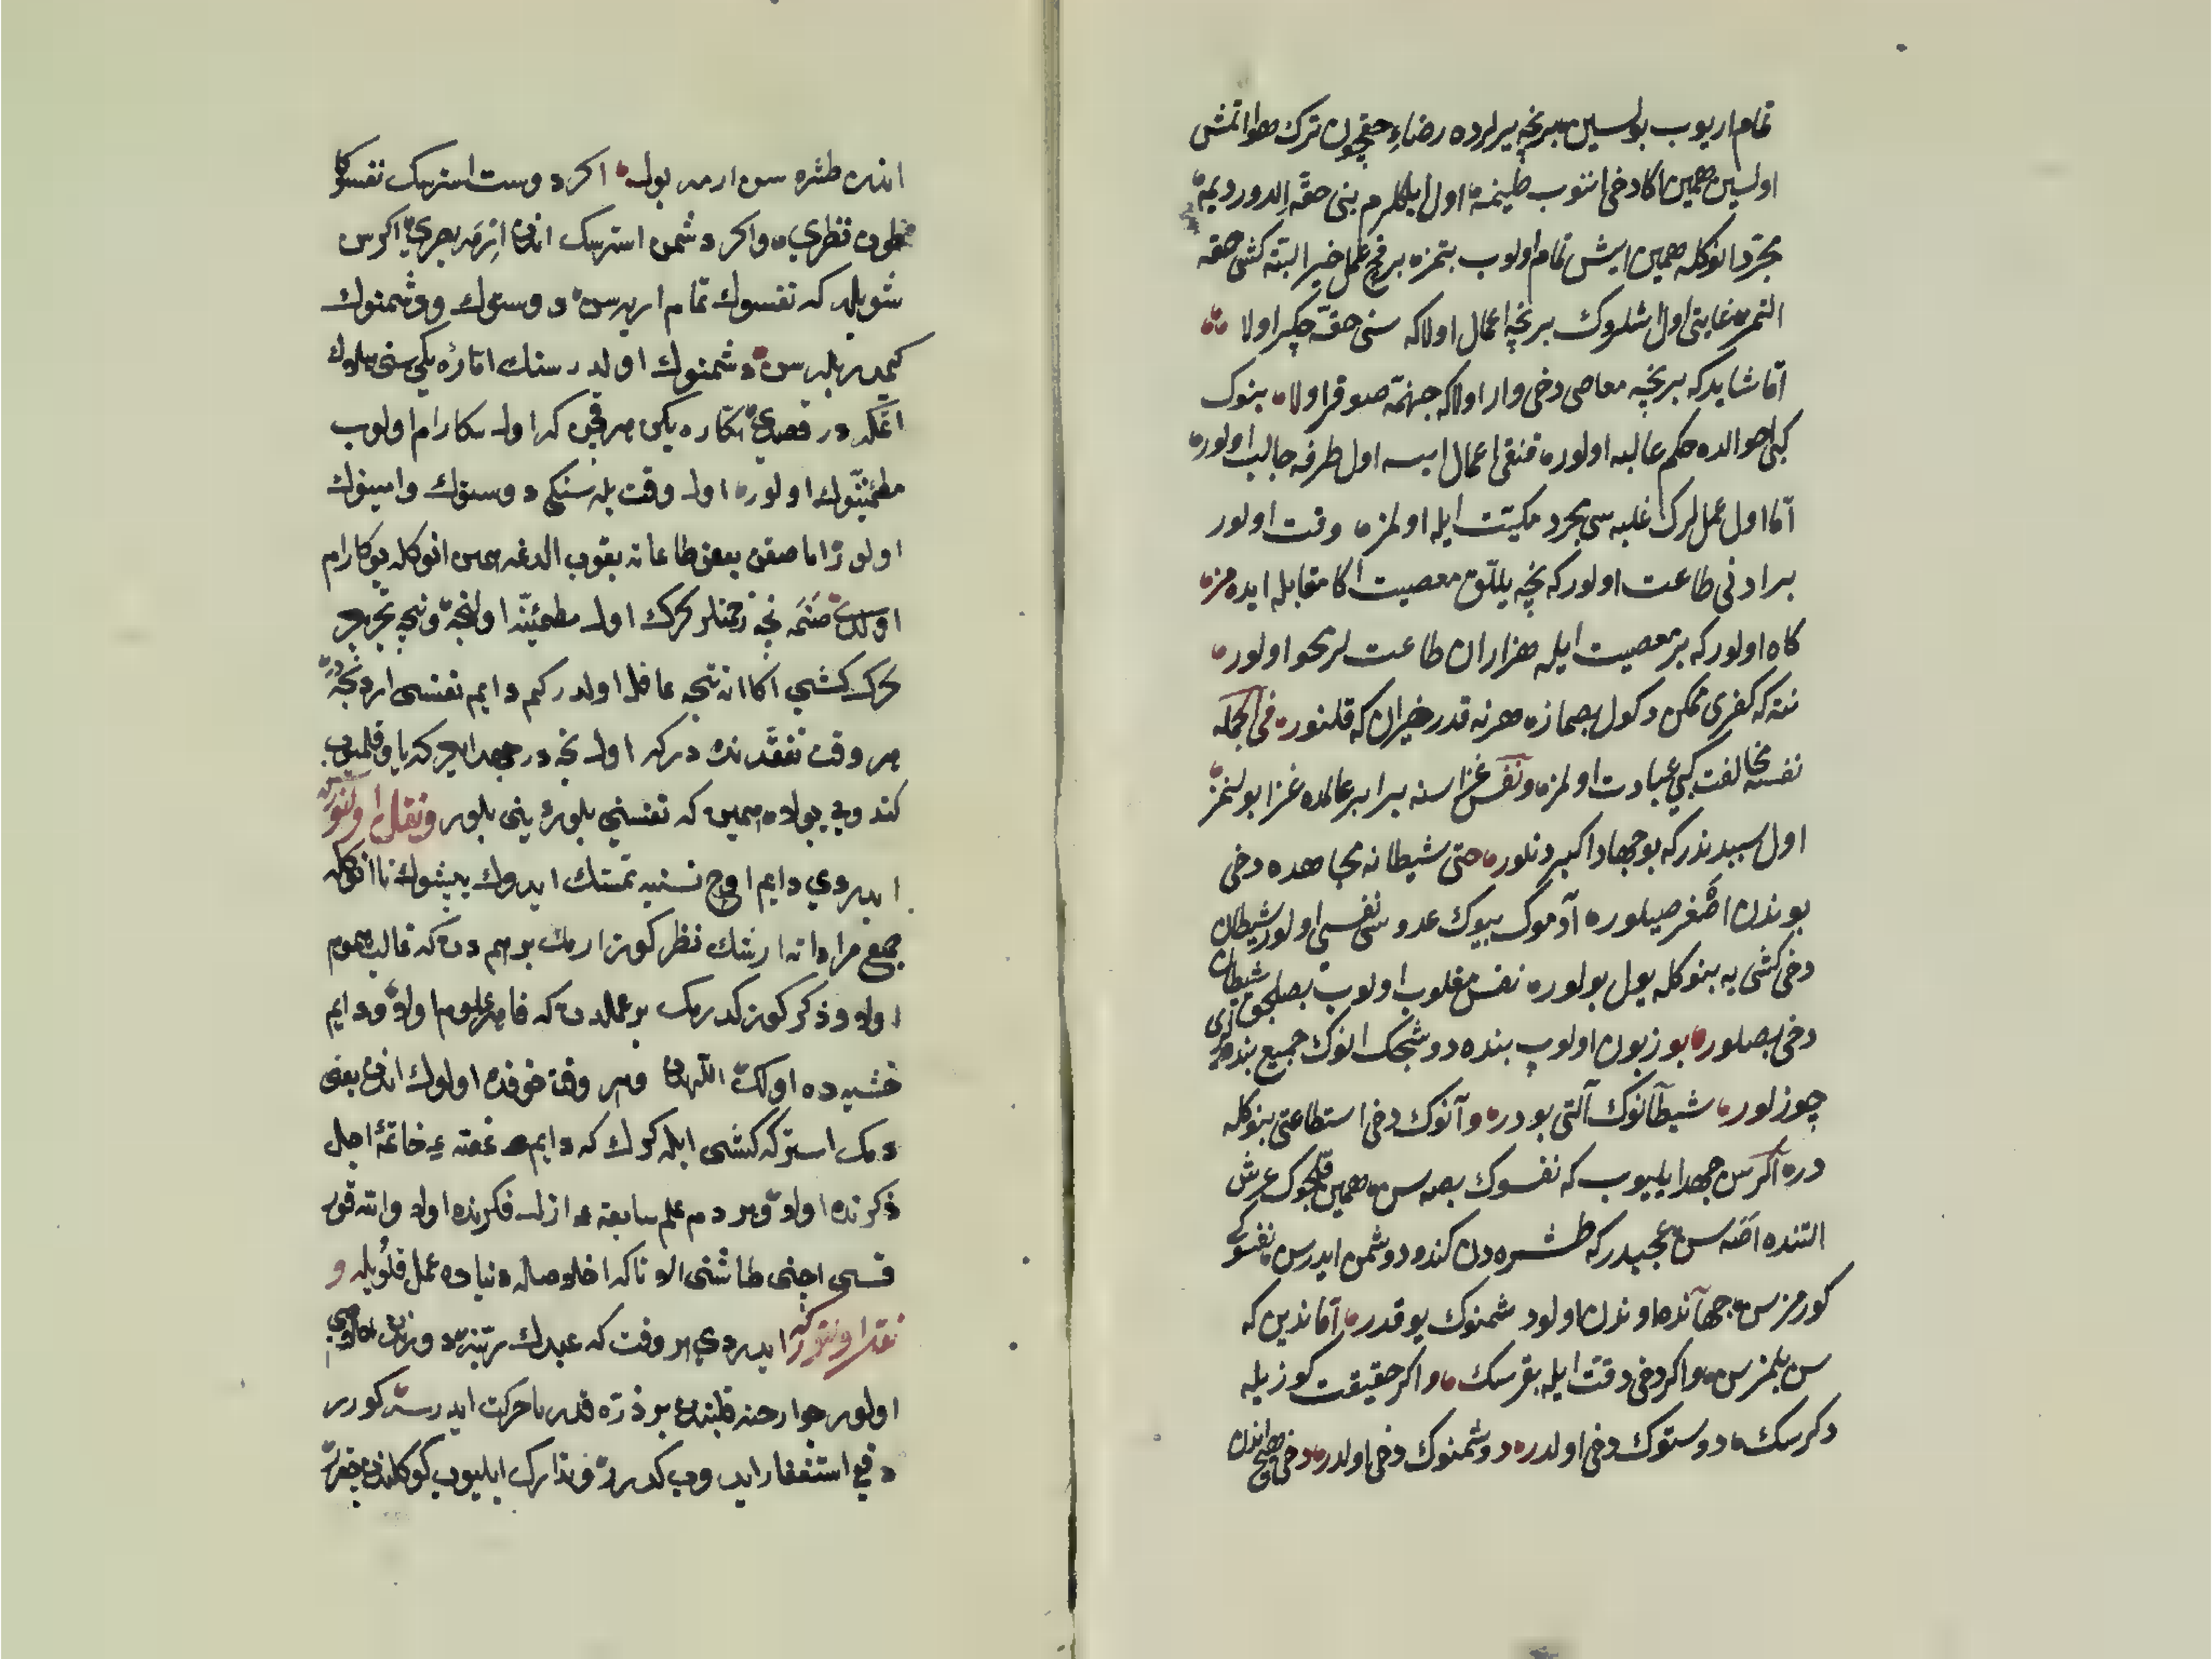 تمام اریوب بولسین برنچه یرلرده رضاء حقچون ترك هوا اتمش
اولسین همین اكا دخی اننوب طینمه اول ایلكلرم بنی حقه الدور دیمه
مجرد انوكله همین ایش تمام اولوب بتمزه بر قچ عمل خیر البته كشی حقه
التمز غایتی اول اشلروك برنچه اعمال اولا كه سنی حقه چكر اولا
اما شاید كه برنچه معاصی دخی وار اولا كه جهنمه صوقر اولا بنوك
كبی احوالده حكم غالبه اولور قنقی اعمال ایسه اول طرفه جالب اولور
اما اول عمللرك غلبه سی مجرد مكیت ایله اولمزه وقت اولور
بر ادنی طاعت اولور كه نچه ییللق معصیت اكا مقابله ایده مز
كاه اولور كه بر معصیت ایله هزاران طاعت لر محو اولور
نته كه كفری ممكن دكول بصمازه هر نه قدر خیرات كه قلنور فی الجمله
نفسه مخالفت كبی عبادت اولمزه و نفس غزاسنه برابر عالمده غزا بولنمز
اول سببدندر كه بو جهاد اكبر دنلور حتی شیطانه مجاهده دخی
بوندن اصغر صیلوره آدموك بیوك عدوسی نفسی اولور شیطان
دخی كشی یه بنوكله یول بولوره نفس مغلوب اولوب بصلجق شیطان
دخی بصلور بو زبون اولوب بنده دوشجك انوك جمیع بندلری
چوزلور شیطانوك آلتی بودر و آنوك دخی استطاعتی بنوكله
دره اكر سن جهد ایلیوب كه نفسوك بصه سن همین قلجوك عرش
التنده اصه سن عجبدر كه طشره دن كندو دوشمن ایدرسن نفسوكی
كورمزسن جهانده اوندن اولو دشمنوك یوقدر اما ندین كه
سن بلمزسن واكر دخی دقت ایله بقرسك واكر حقیقت كوزیله
دكرسك دوستوك دخی اولدر دوشمنوك دخی اولدر دخی هیچ اندن
اندن طشره سن ارمه یوله اكر دوست استرسك نفسوكا
طون نظری واكر دشمن استرسك اندن ازمه بحری اكر سن
شویله كه نفسوك تمام اریرسن دوستوك ودشمنوك
كیمدر بلورسن دشمنوك اولدر سنك اماره یكن سنی یلدوك
اتكدر قصدی اماره یكن هر قچن كه اول سكا رام اولوب
مطمئنوك اولور اول وقت بله سنكی دوستوك وامینوك
اولور اما صقن بعض طاعاته یقوب الدنمه همین انوكله بو كا رام
اولدی صنمه نچه زحمتلر كرك اول مطمئنه اولنجه ونچه تجربه
كرك كشی اكا اننجه عاقل اولدر كم دایم نفسی اردنجه در
هر وقت تفقدنده در كه اول نچه در جهد ایدر كه یاوقلمیه
كندوی یولده همین كه نفسنی بلور ینی بلور ونقل اولنور كه
ایدردی دایم اوچ نسنیه تمسك ایدوك یپشوك تا انوكله
جمیع مراداته ارشك نظر كوزارمك بر هم دن كه غالب هموم
اولا وذكر كوزكدرمك بر علمدن كه فامر علوم اولا ودایم
خشیده اولك اللهدن وهر وقت خوفده اولوك اندن یعنی
دمك استر كه كشی ایله كرك كه دایم غصه ء خاتمه اجل
ذكرنده اولا وهر دم علم سابقه ء ازل فكرنده اولا والله قور
قسی اچنی طاشنی الا تا كه اخلاصله دنیاده عمل قلو بله و
نقل اولنور كه ایدردی هر وقت كه عبدك رتبه دوزن
اولور جوارحنه قلبندن بر ذره قدر نا حركت ایدرسه كورر
دخی استغفار ایدوب كدرر وتدارك ایلیوب كوكلندن چقرر